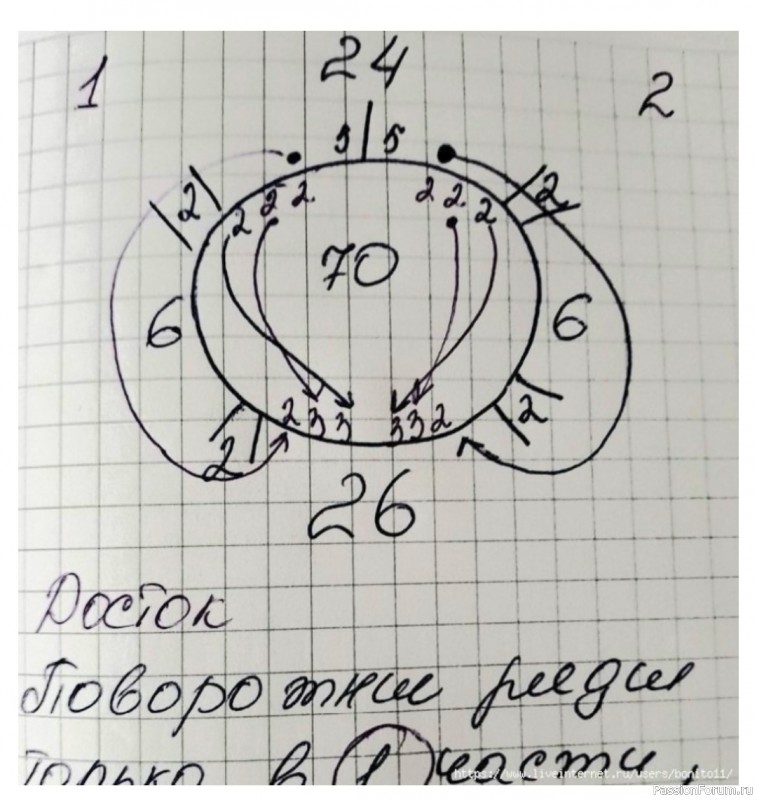 24
1
2
5 5
2 2
2 2 2 2 2 2
70
6 6
2 3 3 3 3 2
2 2
26
Росток
Поворотные ряды
только в 1 части.
https://www.liveinternet.ru/users/bonito11/
PassionForum.ru